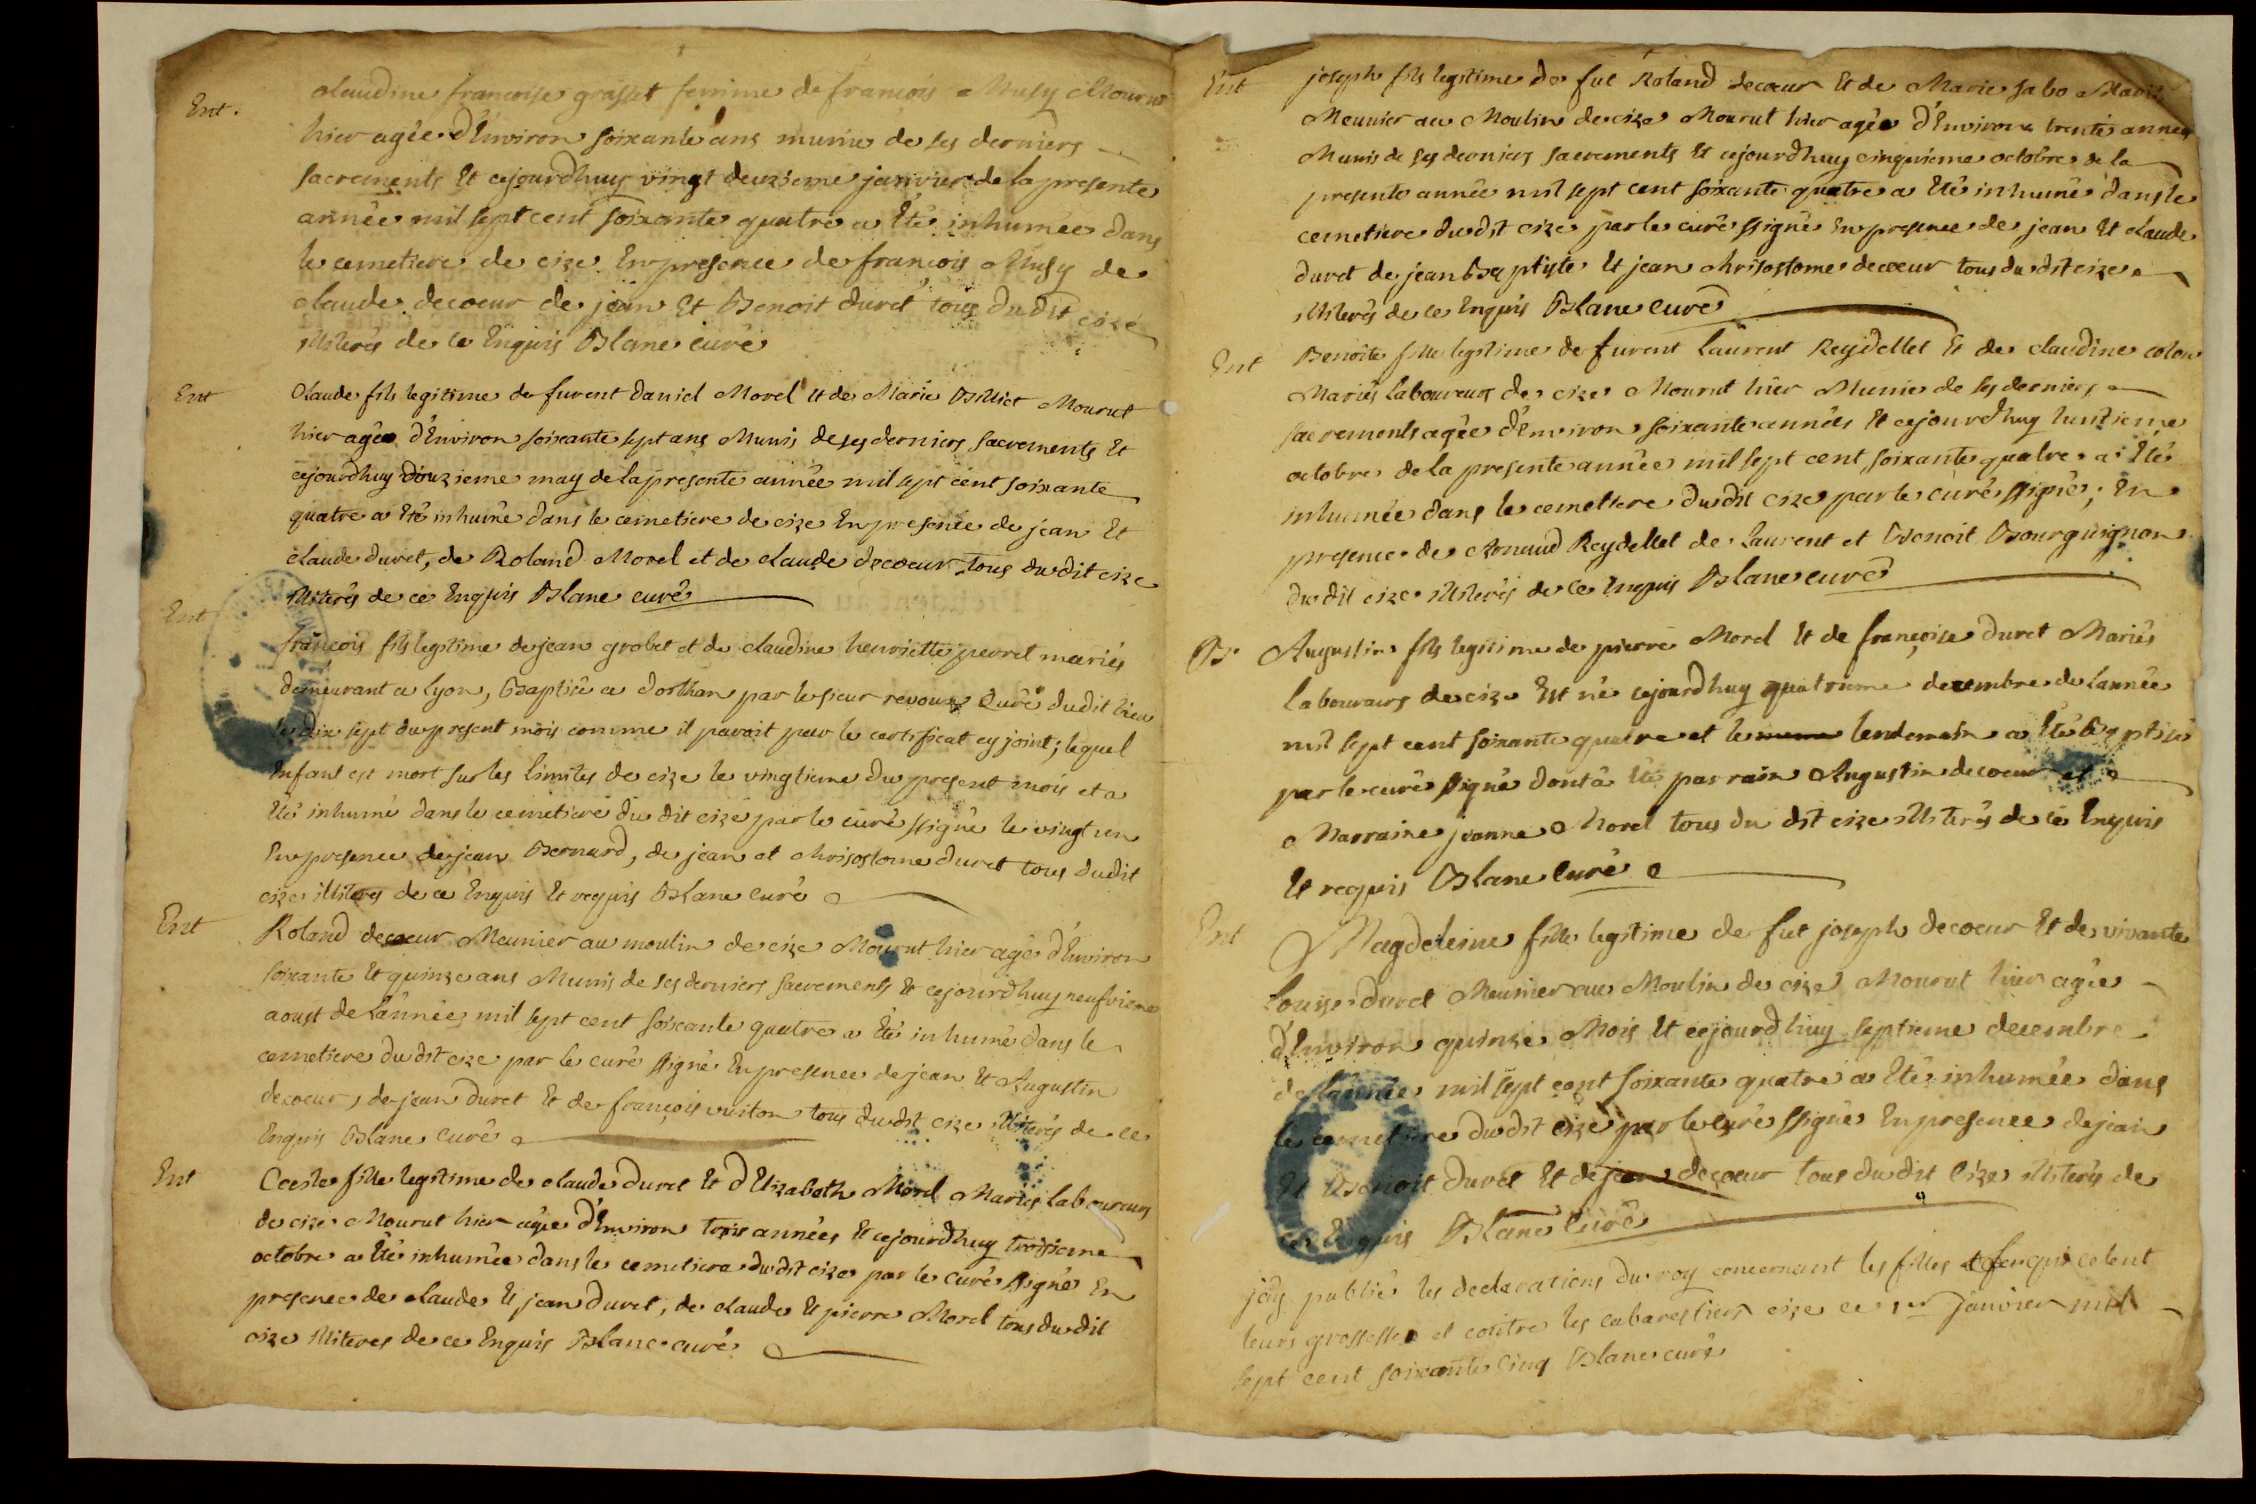 Ent.
claudine francoise grasset femme de francois Musy Mourut
hier agée d'Environ soixante ans munie de ses derniers
sacrements Et cejourdhuy vingt deuxieme janvier de la presente
année mil sept cent soixante quatre a Eté inhumée dans
le cemetiere de cize En presence de francois Musy de
claude decoeur de jean Et Benoit duret tous du dit cize
illiterés de ce Enquis Blanc curé
Ent
Claude fils legitime de furent daniel Morel Et de Marie Billiet Mourut
hier agée d'Environ soixante sept ans Munis de ses derniers sacrements Et
cejourdhuy douzieme may de la presente année mil sept cent soixante
quatre a Eté inhumé dans le cemetiere de cize En presence de jean Et
claude duret, de Roland Morel et de claude decoeur tous du dit cize
illiterés de ce Enquis Blanc curé
Ent
françois fils legitime de jean grobet et de claudine henriette perret mariés
demeurant a Lyon, Baptisé a dorthan par le sieur revoux Curé du dit lieu
le dix sept du present mois comme il paroit par le certificat cy joint; lequel
Enfant est mort sur les limites de cize le vingtieme du present mois et a
Eté inhumé dans le cemetiere du dit cize par le curé ssigné le vingt un
En presence de jean Bernard, de jean et chrisostome duret tous dudit
cize illiteres de ce Enquis Et requis Blanc curé
Ent
Roland decoeur Meunier au moulin de cize Mourut hier agé d'Environ
soixante Et quinze ans Munis de ses derniers sacrements Et cejourdhuy neufvieme
aoust de L'année mil sept cent soixante quatre a Eté inhumé dans le
cemetiere du dit cize par le curé ssigné En presence de jean Et Augustin
decoeur, de jean duret Et de françois vuiton tous du dit cize illiterés de ce
Enquis Blanc curé
Ent
fille legitime de claude duret Et d'Elizabeth Morel Mariés laboureurs
de cize Mourut hier agée d'Environ trois années Et cejourdhuy troisieme
octobre a Eté inhumée dans le cemetiere du dit cize par le curé ssigné En
presence de claude Et jean duret, de claude Et pierre Morel tous du dit
cize illiteres de ce Enquis Blanc curé
Ent
joseph fils legitime de fut Roland decoeur Et de Marie sabo Mariés
Meunier au Moulin de cize Mourut hier agée d'Environ trente années
Munis de ses derniers sacrements Et cejourdhuy cinquieme octobre de la
presente année mil sept cent soixante quatre a Eté inhumé dans le
cemetiere du dit cize par le curé ssigné En presence de jean Et claude
duret de jean Baptiste Et jean chrisostome decoeur tous du dit cize
illiterés de ce Enquis Blanc curé
Ent
Benoite fille legitime de furent Laurent Reydellet Et de claudine colon
Mariés Laboureurs de cize Mourut hier Munie de ses derniers
sacrements agée d'Environ soixante années Et cejourdhuy huitieme
octobre de la presente année mil sept cent soixante quatre a Eté
inhumée dans le cemetiere du dit cize par le curé ssigné; En
presence de Reydellet de Laurent et Benoit Bourguignon
du dit cize illiterés de ce Enquis Blanc curé
B.
Augustin fils legitime de pierre Morel Et de françoise duret Mariés
laboureurs de cize Est né cejourdhuy quatrieme decembre de lannée
mil sept cent soixante quatre et le lendemain a Eté Baptisé
par le curé ssigné dont a Eté parrain Augustin decoeur et
Marraine jeanne Morel tous du dit cize illiterés de ce Enquis
Et requis Blanc Curé
Ent
Magdeleine fille legitime de fut joseph decoeur Et de vivante
Louise duret Meunier au Moulin de cize Mourut hier agée
d'Environ quinze Mois Et cejourdhuy septieme decembre
de l'année mil sept cent soixante quatre a Eté inhumée dans
le cemetiere du dit cize par le curé ssigné En presence de jean
Et Benoit duret Et de jean decoeur tous du dit Cize illiterés de
ce Enquis Blanc Curé
j'ay publié les declarations du roy concernant les filles et fem qui celent
leurs grossesses et contre les cabarestiers cize ce 1er janvier mil
sept cent soixante cinq Blanc curé